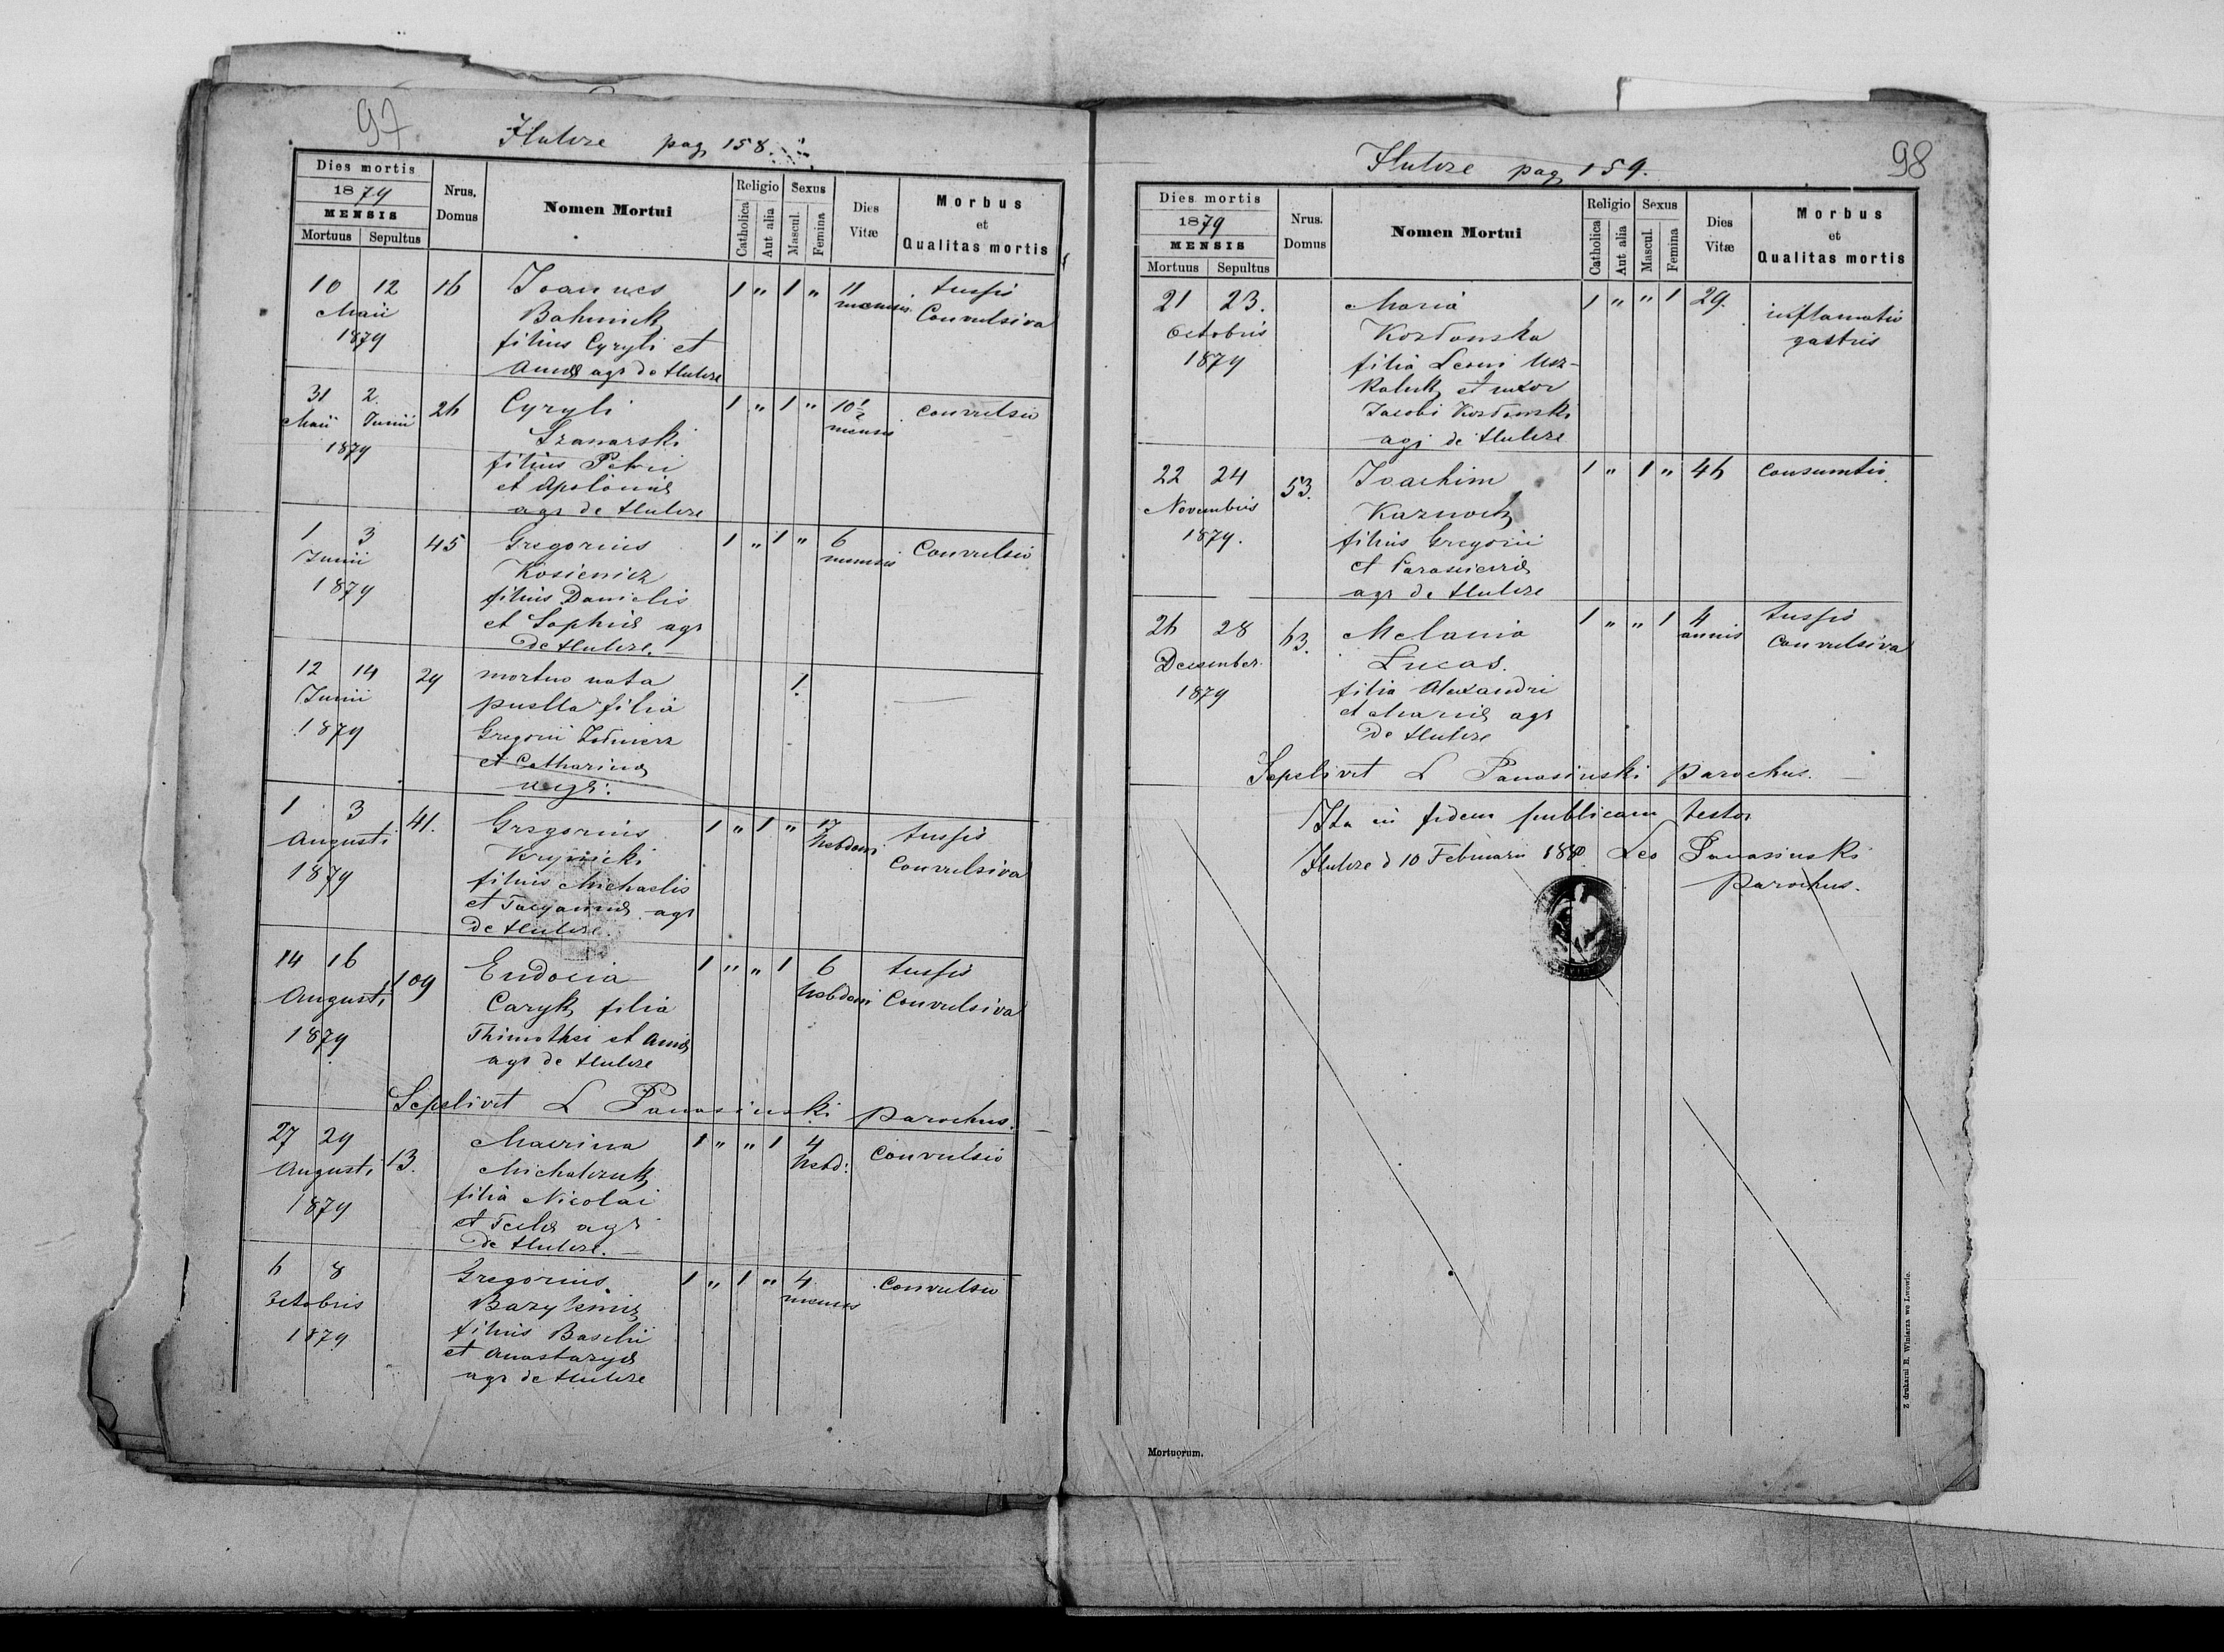 97
Hulcze pag 158.
Dies mortis
1879
MENSIS
Mortuus Sepultus
Nrus. Domus
Nomen Mortui
Religio
Catholica
Aut alia
Sexus
Mascul.
Femina
Dies Vitæ
Morbus
et
Qualitas mortis
10 12 16 Joannes 1 " 1 " 11 tussis
Maii Bahniuk mensis Convulsiva
1879 filius Cyryli et
Annæ agr de Hulcze
31 2 26 Cyryli 1 " 1 " 10½ Convulsio
Maii Junii Szanarski mensis
1879 filius Petri
et Apoloniæ
agr de Hulcze
1 3 45 Gregorius 1 " 1 " 6 Convulsio
Junii Kosienicz mensis
1879 filius Danielis
et Sophiæ agr
de Hulcze.
12 14 29 mortuo nata 1.
Junii puella filia
1879 Gregorii Żołnierz
et Catharinæ
agr:
1 3 41. Gregorius 1 " 1 " 17 tussis
Augusti Krynicki hebdom Convulsiva
1879 filius Michaelis
et Tacyannæ agr
de Hulcze.
14 16 109 Eudocia 1 " " 1 6 tussis
Augusti Caryk filia hebdom Convulsiva
1879 Thimothei et Annæ
agr de Hulcze
Sepelivit L Panasinski parochus.
27 29 13. Macrina 1 " " 1 4 Convulsio
Augusti Michalczuk hebd:
1879 filia Nicolai
et Teclæ agr
de Hulcze.
6 8 Gregorius 1 " 1 " 4 Convulsio
Octobris mensis
1879 filius Basilii
et Anastazyæ
agr de Hulcze
98
Hulcze pag 159.
Dies mortis
1879
MENSIS
Mortuus Sepultus
Nrus. Domus
Nomen Mortui
Religio
Catholica
Aut alia
Sexus
Mascul.
Femina
Dies Vitæ
Morbus
et
Qualitas mortis
21 23. Maria 1 " " 1 29. inflamatio
Octobris Kozłowska gastris
1879 filia Leoni Usz-
kaluk et uxor
Jacobi Kozłowski
agr de Hulcze
22 24 53. Joachim 1 " 1 " 46 Consumtio.
Novembris Kaznoch
1879. filius Gregorii
et Parasceviæ
agr de Hulcze
26 28 63. Melania 1 " " 1 4 tussis
Decembr. Lucas. annis Convulsiva
1879 filia Alexandri
et Mariæ agr
de Hulcze
Sepelivit L Panasinski parochus.
Ita in fidem publicam testor
Hulcze d 10 Februarii 1880. Leo Panasinski
parochus.
Mortuorum.
Z drukarni E. Winiarza we Lwowie.